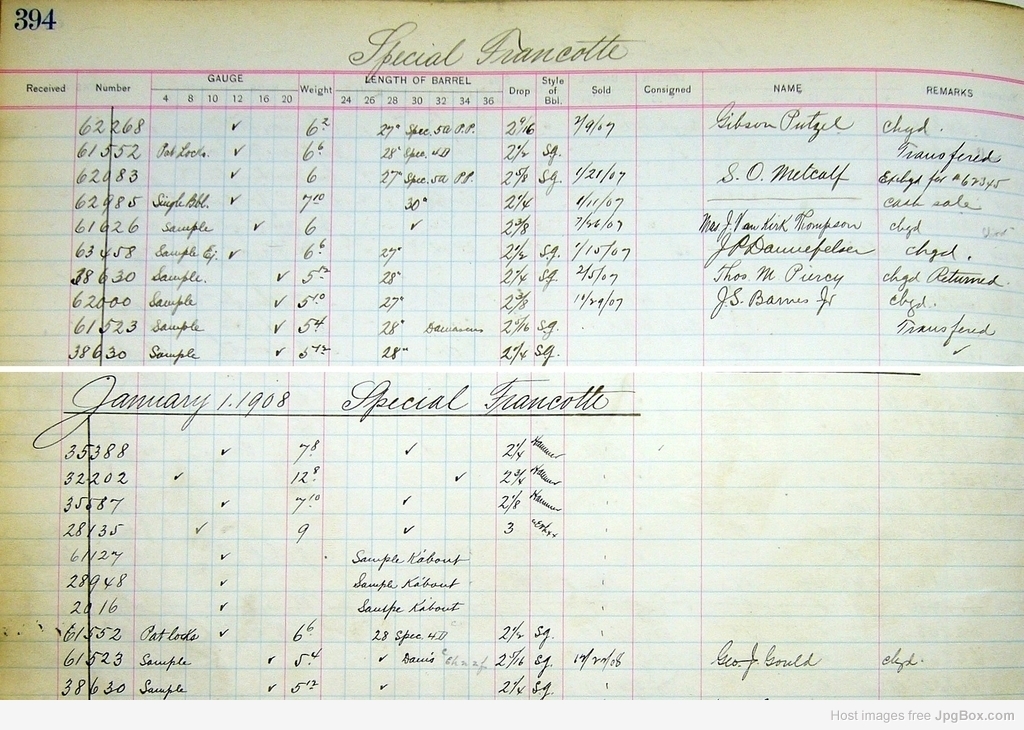 394
Special Francotte
Received Number GAUGE 4 8 10 12 16 20 Weight LENGTH OF BARREL 24 26 28 30 32 34 36 Drop Style of Bbl. Sold Consigned NAME REMARKS
62268 ✓ 6 2 27" Spec. 5a P.P. 2/9/07 Gibson Putzel chgd.
61552 Pat Locks. ✓ 6 6 28" Spec. 4D 2 1/2 Sq. Transfered
62083 ✓ 6 27" Spec. 5a P.P. Sq. 1/21/07 S. O. Metcalf Exchgd for #62345
62985 Single Bbl. ✓ 7 10 30" 2 1/4 1/11/07 cash sale
61626 Sample ✓ 6 ✓ 2 3/8 7/26/07 Mrs J. Van Kirk Thompson chgd
63458 Sample Ej. ✓ 6 6 27" 2 1/2 Sq. 1/15/07 J.P. Dannefelser chgd.
38630 Sample. ✓ 5 12 28" 2 1/4 Sq. 2/5/07 Thos M Piercy chgd Returned.
62000 Sample ✓ 5 10 27" 2 3/8 10/29/07 J.S. Barnes Jr chgd.
61523 Sample ✓ 5 4 28" Damascus 2 5/16 Sq. Transfered
38630 Sample ✓ 5 12 28" 2 1/4 Sq. ✓
January 1. 1908 Special Francotte
35388 ✓ 7 8 ✓ 2 1/4 Hammer
32202 ✓ 12 8 ✓ 2 3/4 Hammer
35587 ✓ 7 10 ✓ 2 1/8 Hammer
28135 ✓ 9 ✓ 3
61127 ✓ Sample Kabout
28948 ✓ Sample Kabout
2016 ✓ Sample Kabout
61552 Pat locks ✓ 6 6 28 Spec. 4D 2 1/2 Sq.
61523 Sample ✓ 5 4 ✓ Dam's 2 5/16 Sq. 12/22/08 Geo. J. Gould chgd.
38630 Sample ✓ 5 12 ✓ 2 1/4 Sq.
Host images free JpgBox.com